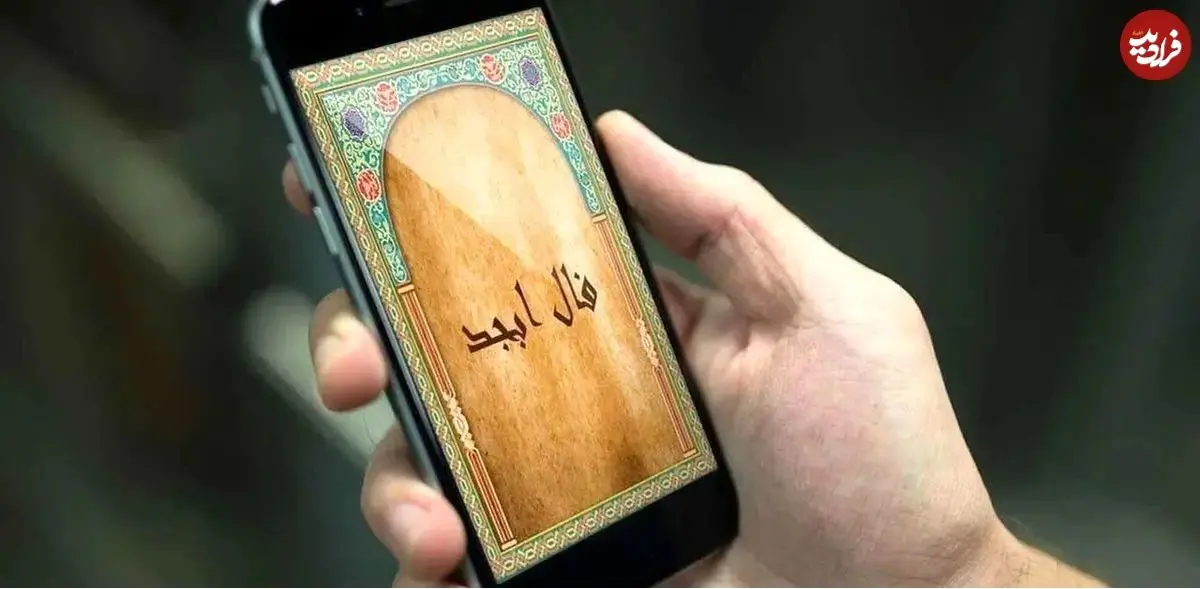 فرادید
فال ابجد